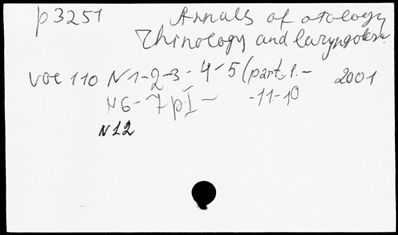 p3251 Annals of otology
rhinology and laryngolo
voe 110 N1-2-3-4-5 (part.1.- 2001
N6-7 pI- -11-10
N12